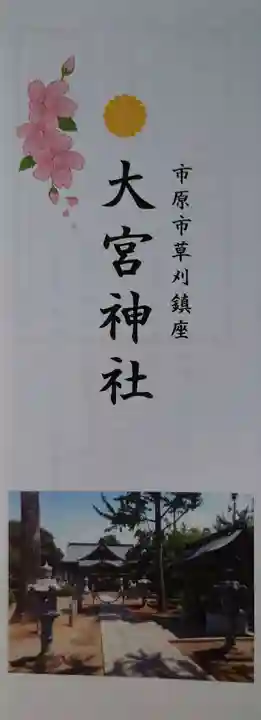 市原市草刈鎮座
大宮神社